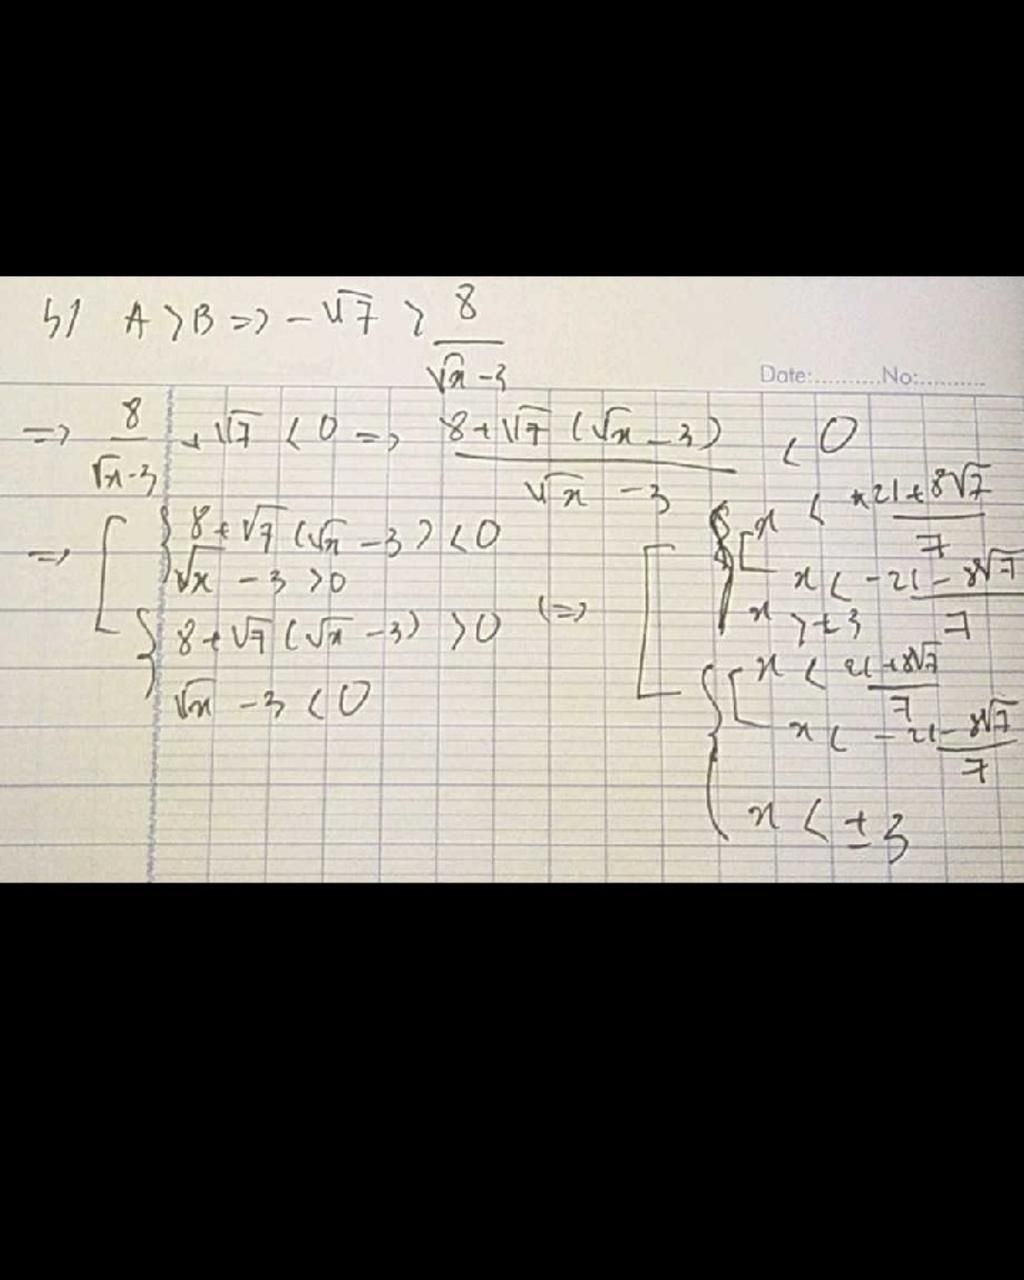 b) A > B => -√7 > 8/(√x - 3)
Date:..........No:..........
=> 8/(√x-3) + √7 < 0 => (8+√7 (√x - 3))/(√x - 3) < 0
=> [ { 8+√7 (√x - 3) < 0
√x - 3 > 0
{ 8+√7 (√x - 3) > 0
√x - 3 < 0
(=> [ { [ x < (21+8√7)/7
x < (-21-8√7)/7
x > ± 3
{ [ x < (21+8√7)/7
x < (-21-8√7)/7
x < ± 3